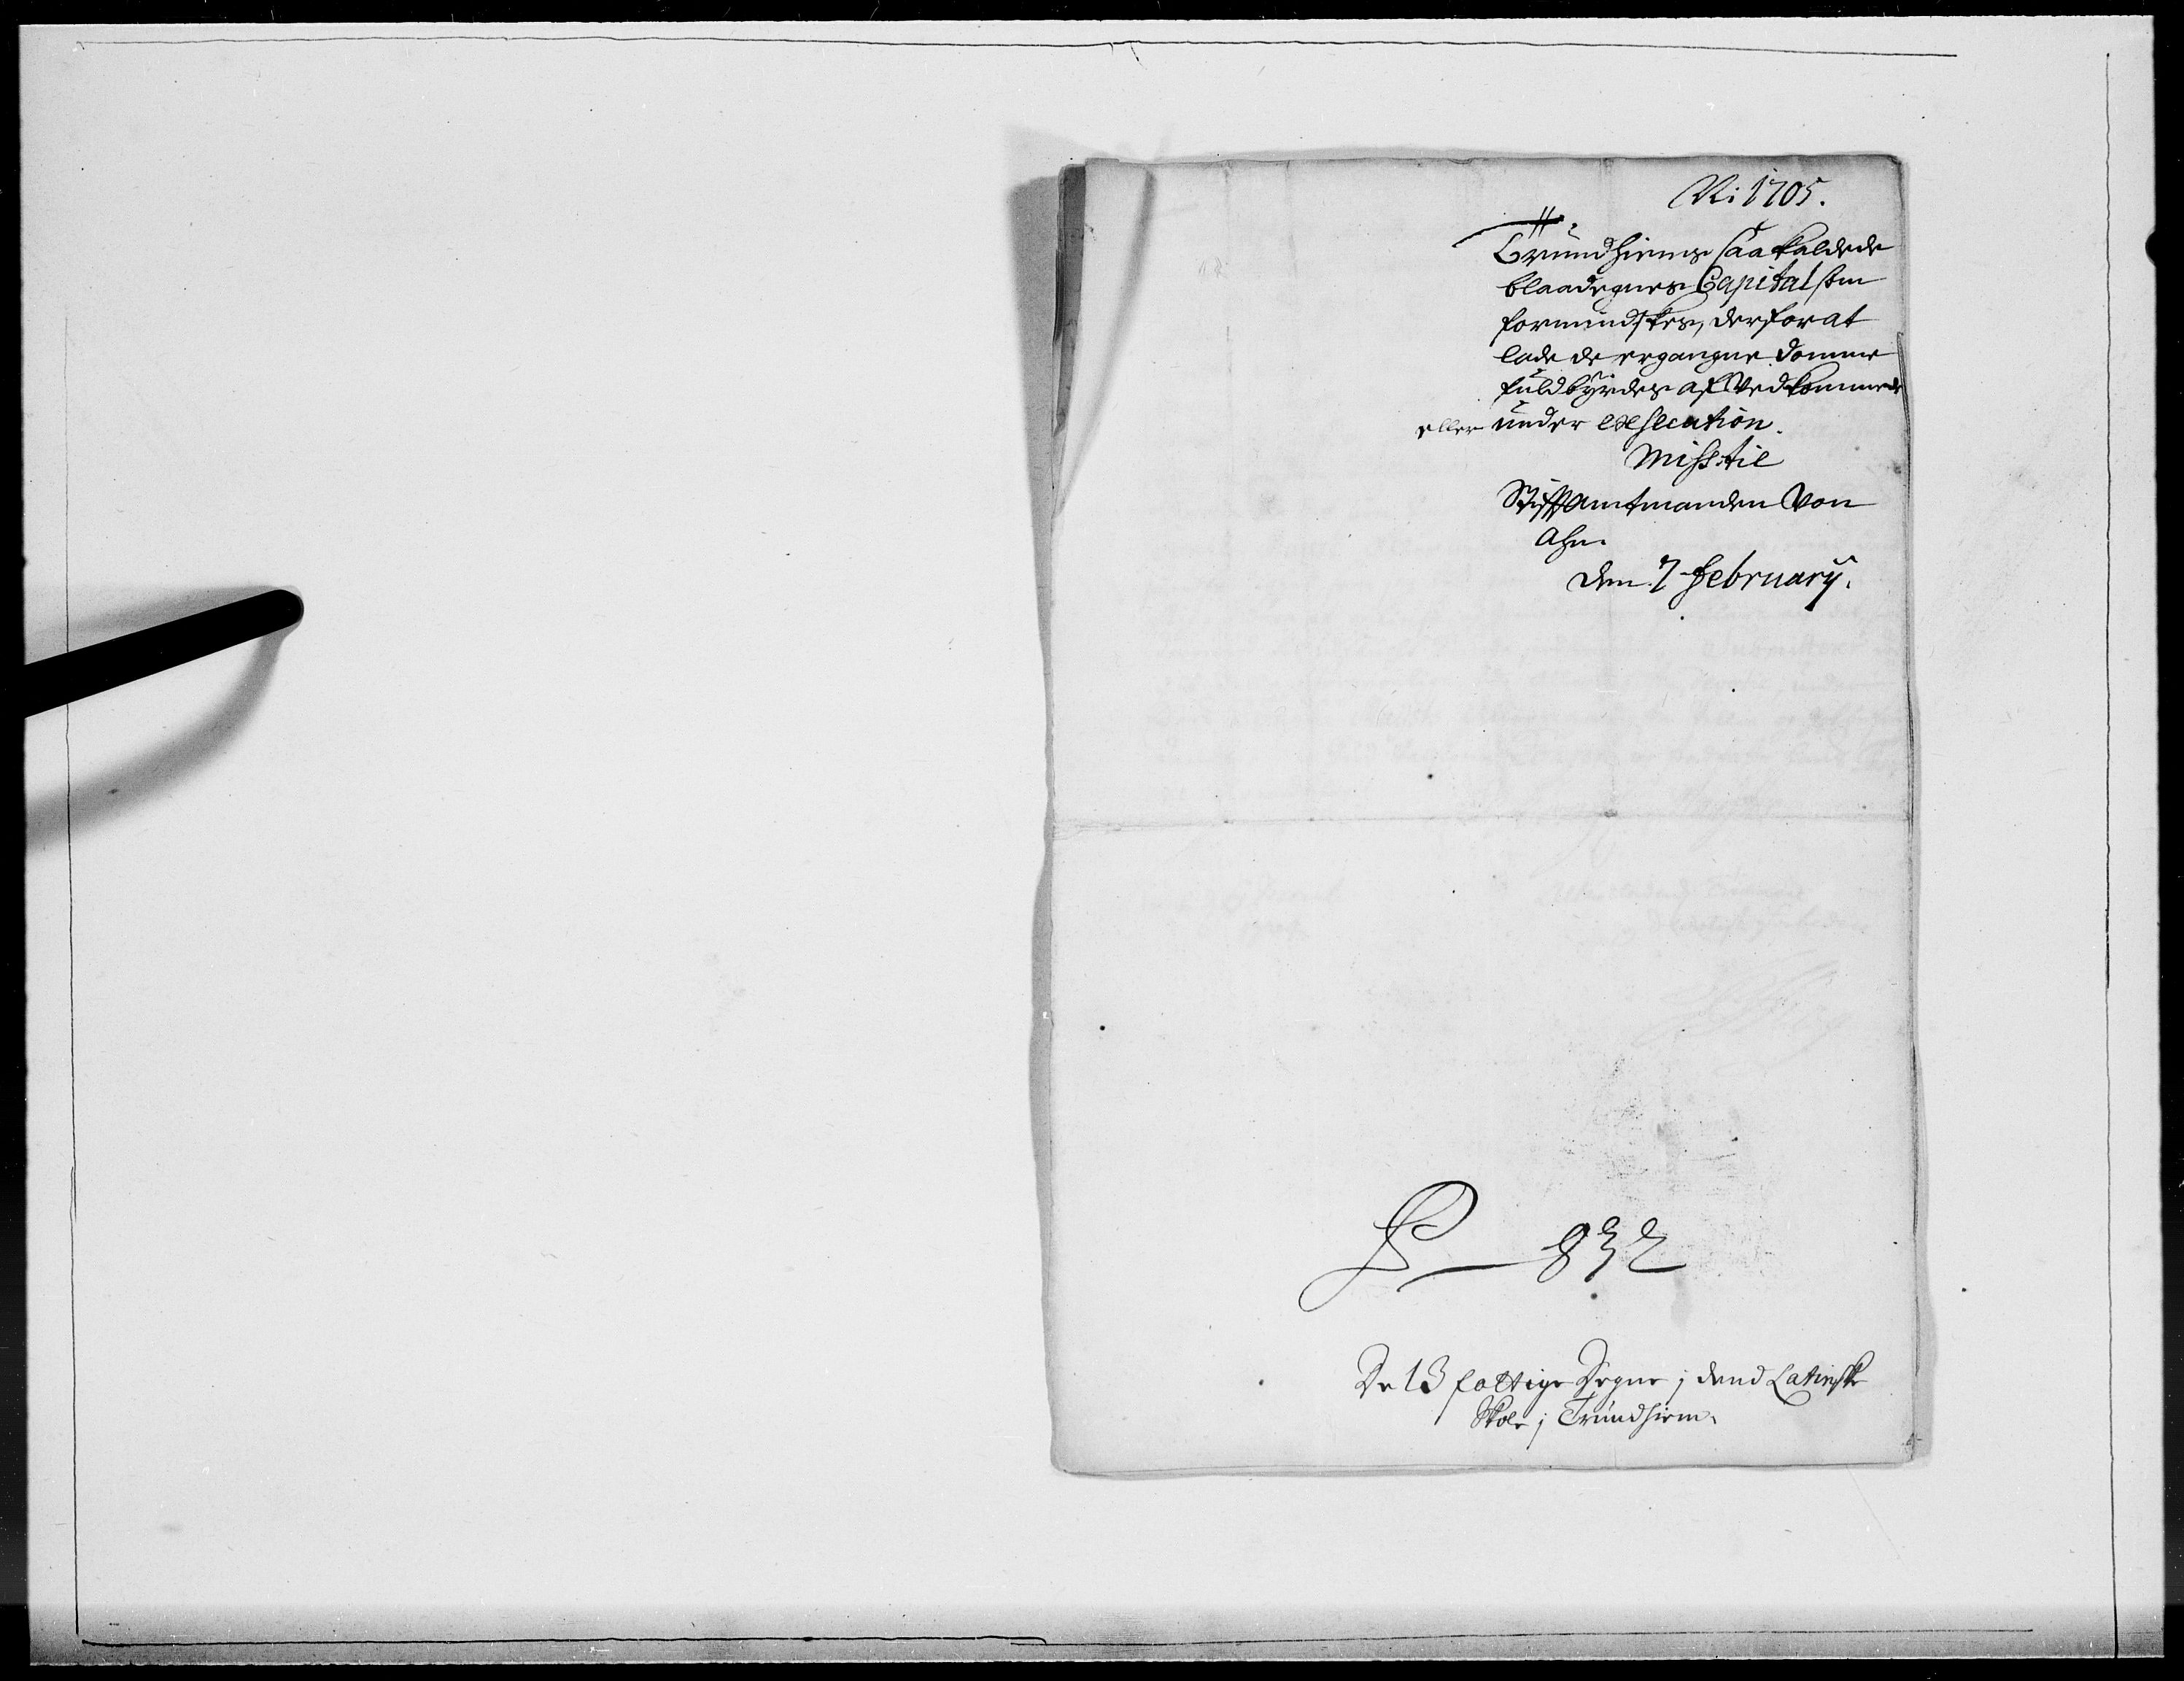 Ni: 1705.
Trundhiems saa kaldede
blaadegnes Capital som
formindskes, derfor at
lade de ergangne Domme
fuldbyrdes af Vedkommende
eller under execution.
Miss: til
Stiftamtmanden Von
Ahn.
den 7 February.
P 832
De 13 fattige Degne j dend Latinske
Skole j Trundhiem.